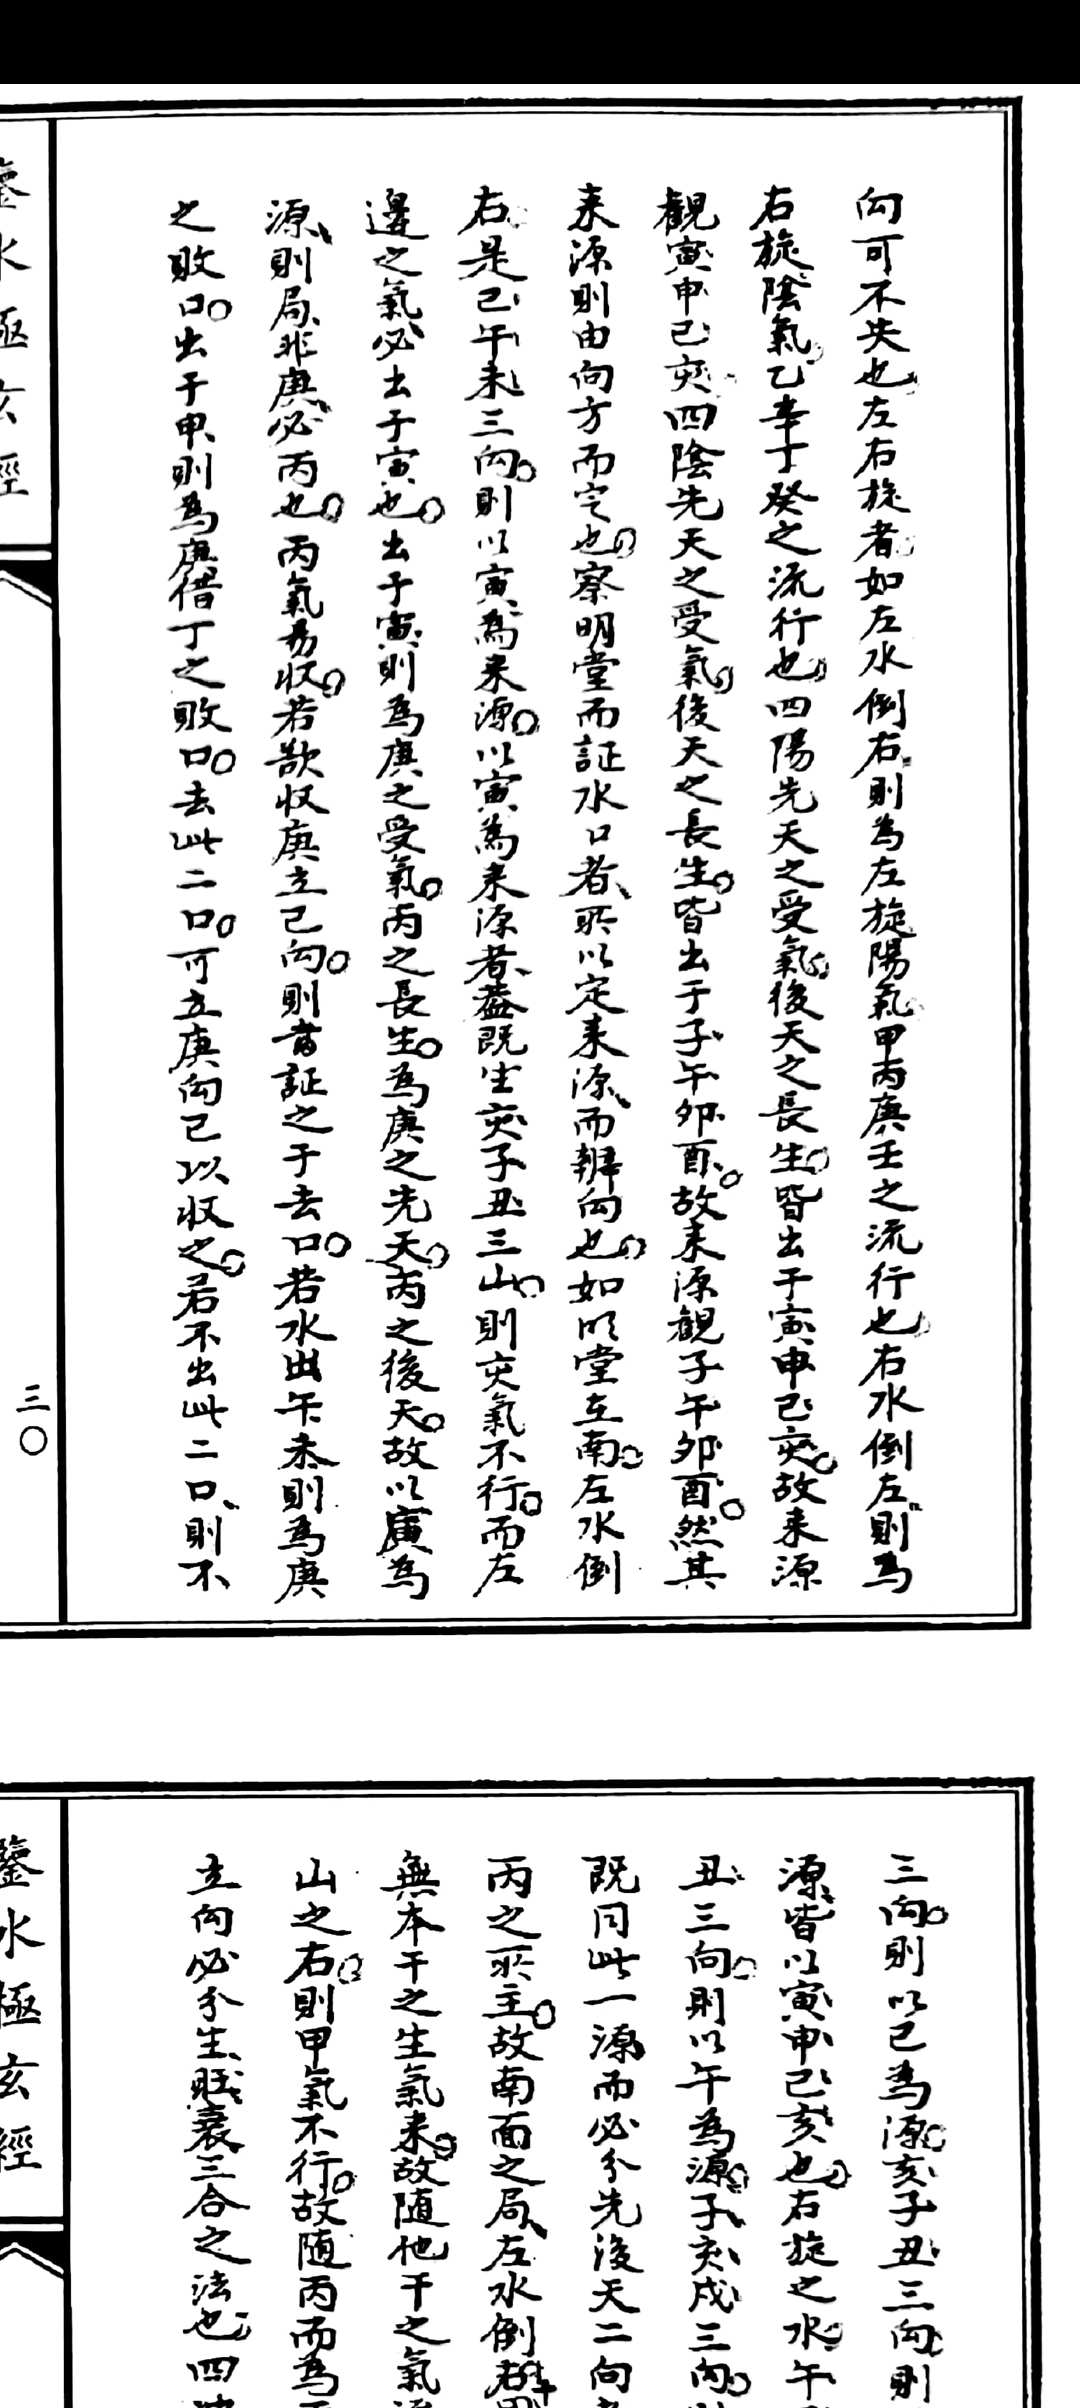 向可不失也左右旋者如左水倒右則為左旋陽氣甲丙庚壬之流行也右水倒左則為
右旋陰氣乙辛丁癸之流行也四陽先天之受氣後天之長生皆出于寅申巳亥故来源
觀寅申巳亥四陰先天之受氣後天之長生皆出于子午卯酉故来源觀子午卯酉然其
来源則由向方而定也察明堂而証水口者所以定来源而辨向也如明堂在南左水倒
右是巳午未三向則以寅為来源以寅為来源者葢既坐亥子丑三山則亥氣不行而左
邊之氣必出于寅也出于寅則為庚之受氣丙之長生為庚之先天丙之後天故以寅為
源則局非庚必丙也丙氣易収若欲収庚立巳向則當証之于去口若水出午未則為庚
之敗口出于申則為庚借丁之敗口去此二口可立庚向巳以収之若不出此二口則不
鑒水極玄經
三〇
三向則以巳為源亥子丑三向則
源皆以寅申巳亥也右旋之水午
丑三向則以午為源子亥戌三向
既同此一源而必分先後天二向
丙之所主故南面之局左水倒右
無本干之生氣来故隨他干之氣
山之右則甲氣不行故隨丙而為
立向必分生旺衰三合之法也四
鑒水極玄經